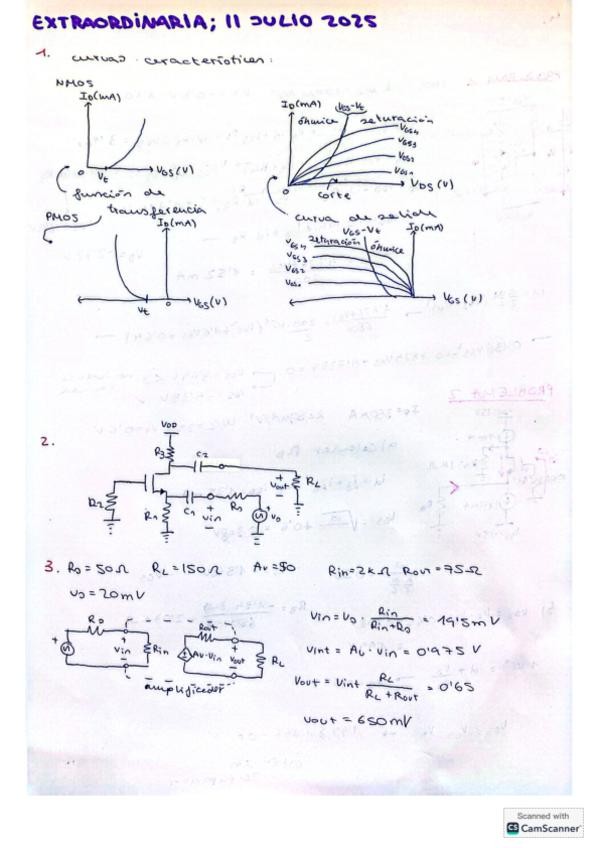 EXTRAORDINARIA; 11 JULIO 2025
1. curvas características:
NMOS
ID(mA)
VGS(V)
0 Vt
función de transferencia
ID(mA) VGS-Vt
óhmica saturación
VGS4
VGS3
VGS2
VGS1
0 corte VDS(V)
curva de salida
PMOS
ID(mA)
Vt 0 VGS(V)
VGS-Vt ID(mA)
VGS4 saturación óhmica
VGS3
VGS2
VGS1
VGS(V)
2.
VDD
R3 C2
R2 R1 C1 + vin - Rs vs + vout - RL
3. Rs = 50Ω RL = 150Ω Av = 50 Rin = 2kΩ Rout = 75Ω
vs = 20mV
Rs + vin - Rin Rout Av·vin + vout - RL
amplificador
Vin = Vs · Rin / Rin+Rs = 19'5mV
Vint = Av · Vin = 0'975 V
Vout = Vint RL / RL + Rout = 0'65
vout = 650mV
Scanned with
CS CamScanner